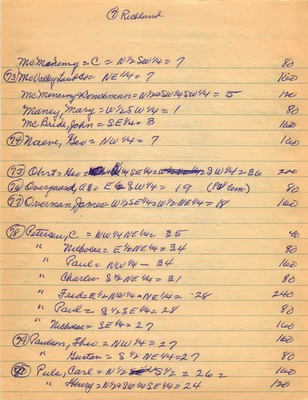 ⑦ Richland
McMenemy = C = N½SW¼ = 7 80
(73) McValley = NE¼ = 7 160
McMenemy = N½+SW¼SW¼ = 5 120
Maney, Mary = W½SW¼ = 1 80
McBride, John = SE¼ = 3 160
(74) Naeve, Geo = NW¼ = 7 160
(75) Ohrt = Geo = SE¼ = SW¼ = 36 200
(76) Overgaard, = E½SW¼ = 19 80
(77) Overman, James = W½SE¼ = W½NE¼ = 18 160
(78) Petersen, C = NW¼NE¼ = 35 40
" Nicholas = E½NE¼ = 34 80
" Paul = NW¼ - 34 160
" Charlie = S½NE¼ = 31 80
" Fred = E½NW¼ = NE¼ = 28 240
" S½SE¼ = 28 80
" Nicholas = SE¼ = 27 160
(79) Paulsen, Theo = NW¼ = 27 160
" Gusten = S½NE¼ = 27 80
Puls, Carl = N½ S½ = 26 = 160
" Henry = N½+SW¼SE¼ = 24 120